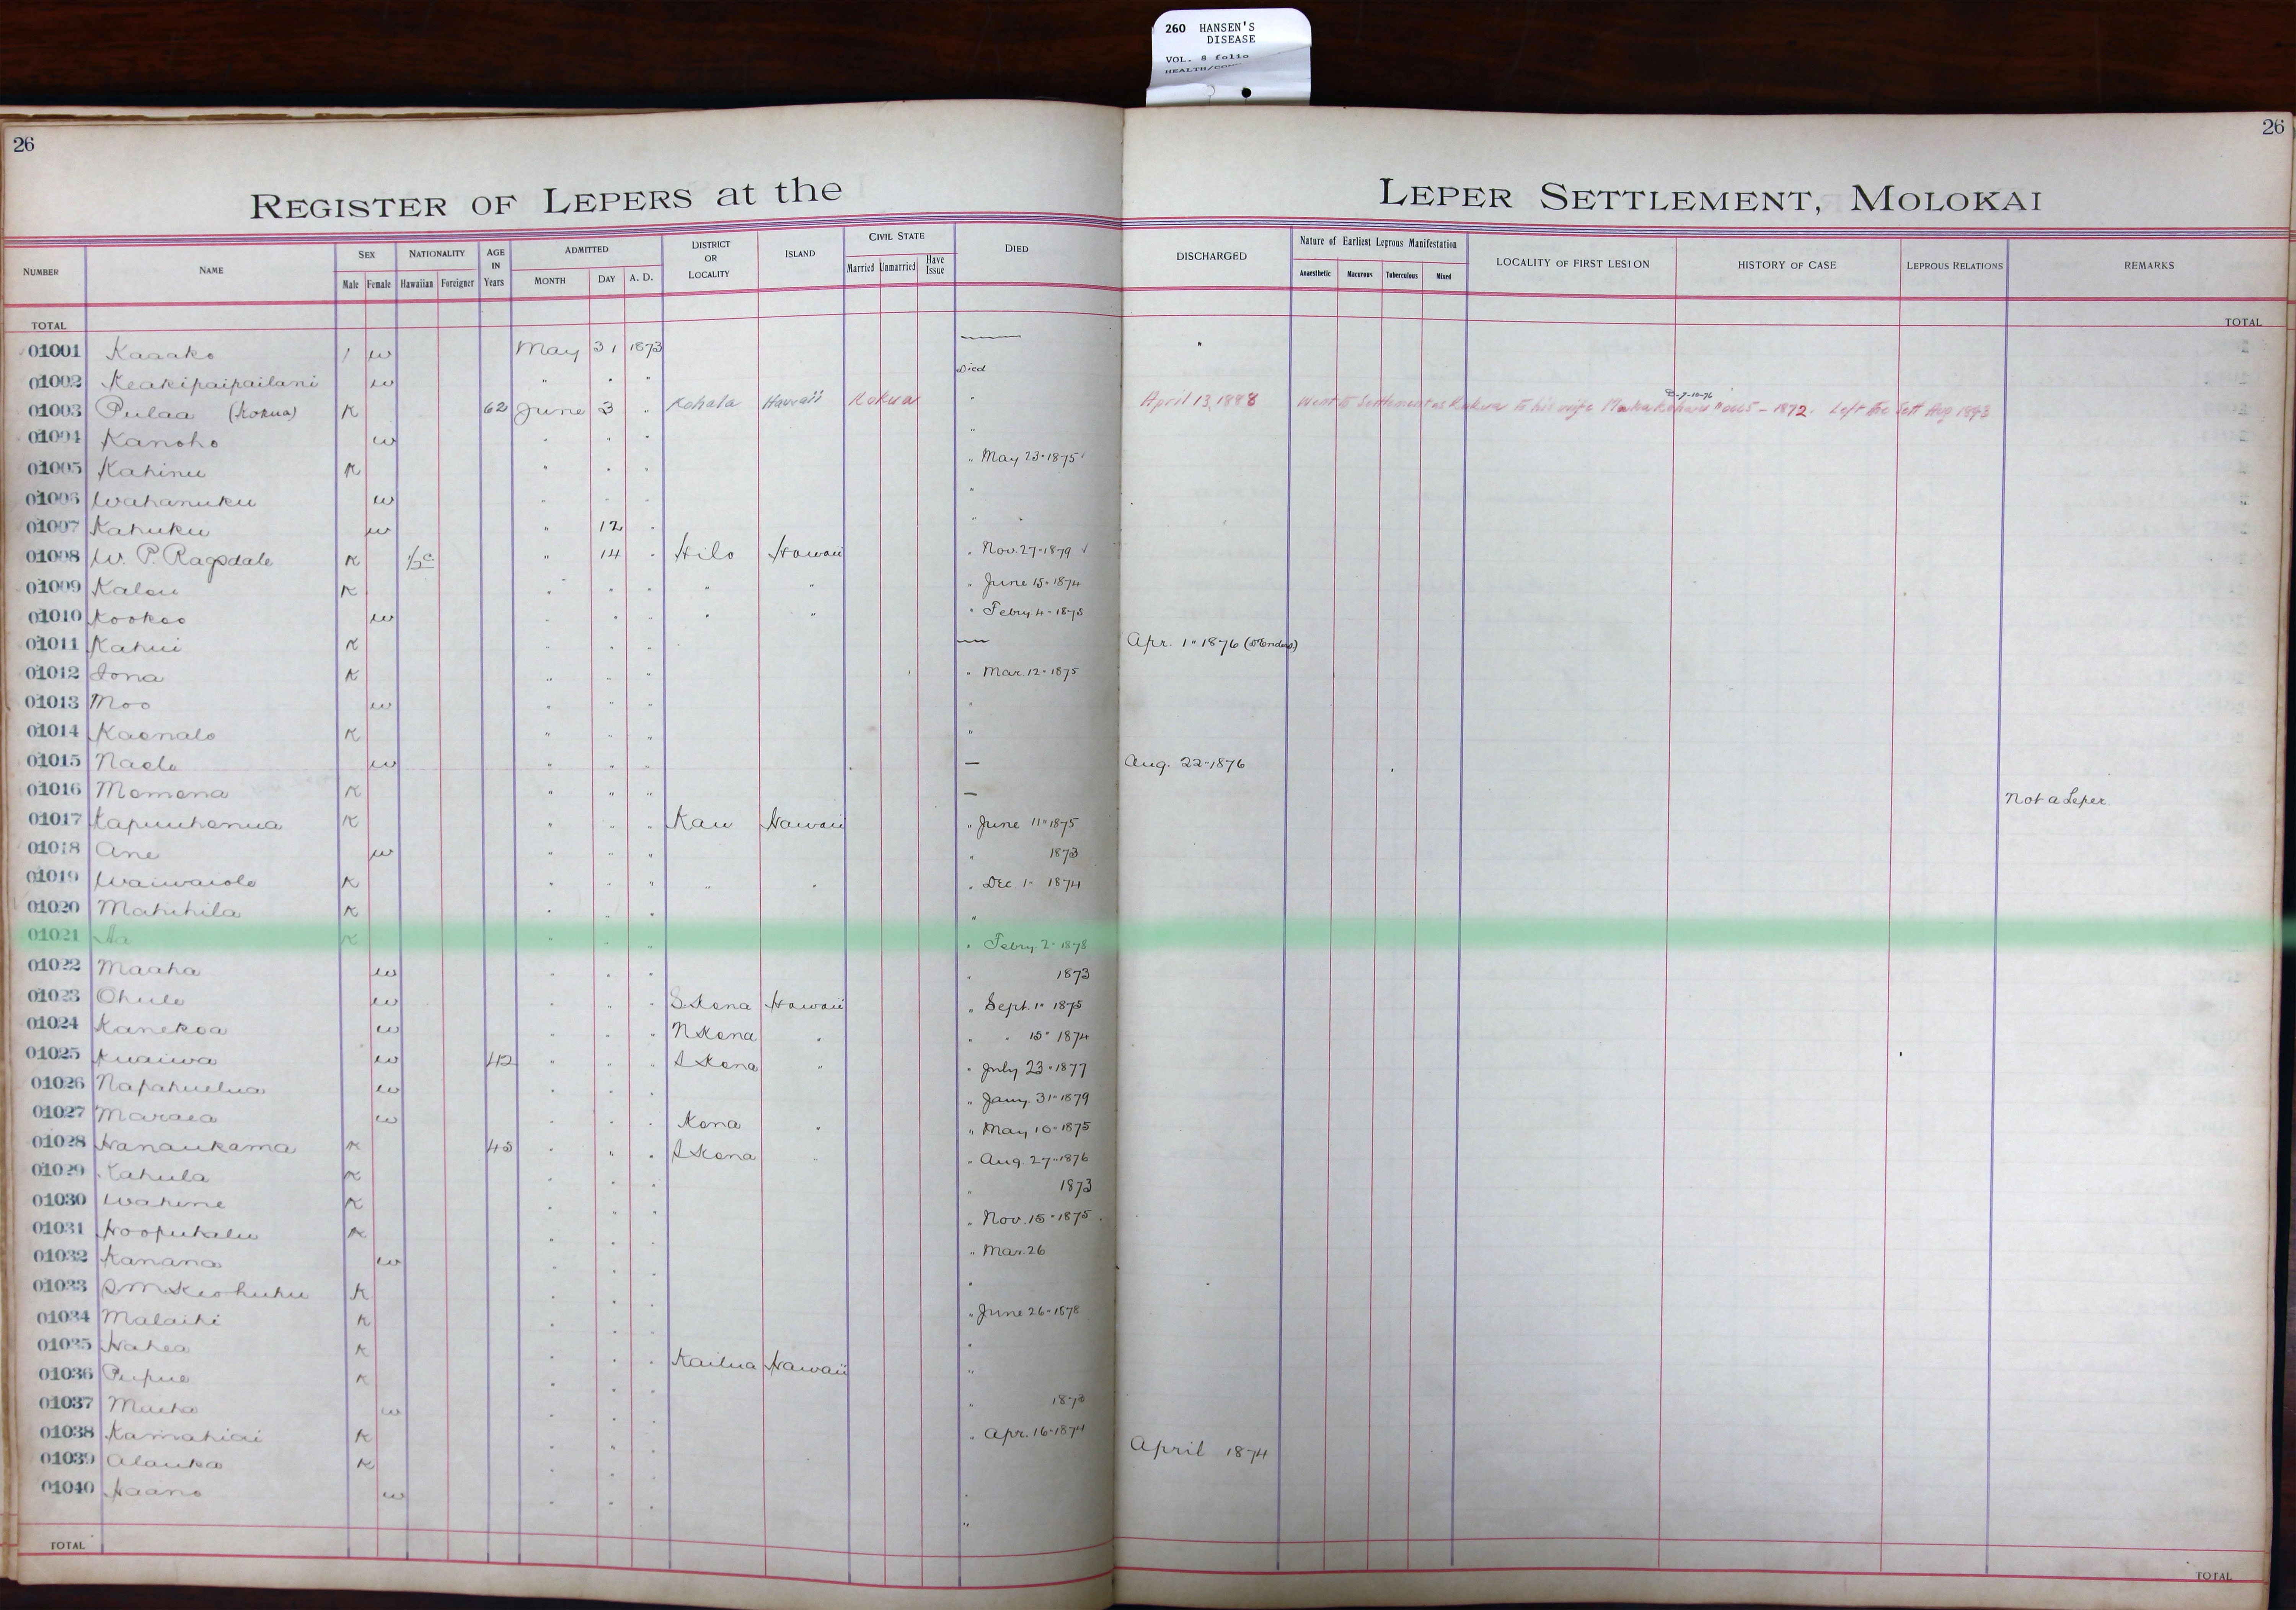 260 HANSEN'S
DISEASE
VOL. 8 folio
26
26
REGISTER OF LEPERS at the LEPER SETTLEMENT, MOLOKAI
NUMBER NAME SEX NATIONALITY AGE IN Years ADMITTED DISTRICT OR LOCALITY ISLAND CIVIL STATE DIED DISCHARGED Nature of Earliest Leprous Manifestation LOCALITY OF FIRST LESION HISTORY OF CASE LEPROUS RELATIONS REMARKS
Male Female Hawaiian Foreigner MONTH DAY A. D. Married Unmarried Have Issue Anaesthetic Macurous Tuberculous Mixed
TOTAL TOTAL
01001 Kaaako / w May 31 1873 —
01002 Keakipaipailani w " " " Died
01003 Pulaa (Kokua) K 62 June 3 " Kohala Hawaii Kokua " April 13, 1888 Went to Settlement as Kokua to his wife - 1872. Left the Sett Aug 1893
01004 Kanoho w " " " "
01005 Kahinu K " " " " May 23 " 1875
01006 Wahanuku w " " " "
01007 Kahuku w " 12 " "
01008 W. P. Ragsdale K ½ c " 14 " Hilo Hawaii " Nov. 27 " 1879
01009 Kalou K " " " " " " June 15 " 1874
01010 Kookoo w " " " " " " Febry 4 - 1875
01011 Kahui K " " " — Apr. 1 " 1876
01012 Iona K " " " " Mar. 12 " 1875
01013 Moo w " " " "
01014 Kaonalo K " " " "
01015 Naolo w " " " — Aug. 22 " 1876
01016 Momona K " " " — Not a Leper
01017 Kapuuhonua K " " " Kau Hawaii " June 11 " 1875
01018 Ane w " " " " 1873
01019 Waiwaiole K " " " " " " Dec. 1 " 1874
01020 Mahihila K " " " "
01021 Aa K " " " " Febry. 2 " 1878
01022 Maaha w " " " " 1873
01023 Ohule w " " " S Kona Hawaii " Sept. 1 " 1875
01024 Kanekoa w " " " N Kona " " " 15 " 1874
01025 Kuaiwa w 42 " " " S Kona " " July 23 " 1877
01026 Napahuelua w " " " " Jany. 31 " 1879
01027 Maraea w " " " Kona " " May 10 " 1875
01028 Hanaukama K 45 " " " S Kona " " Aug. 27 " 1876
01029 Kahula K " " " " 1873
01030 Wahine K " " " " Nov. 15 " 1875
01031 Hoopukalu K " " " " Mar. 26
01032 Kanana w " " " "
01033 S M Keohuhu K " " " " June 26 " 1878
01034 Malaihi K " " " "
01035 Hahea K " " " Kailua Hawaii "
01036 Pupue K " " " " 1873
01037 Maeha w " " " " Apr. 16 " 1874
01038 Kamahiai K " " " April 1874
01039 Alauka K " " " "
01040 Haano w " " " "
TOTAL TOTAL